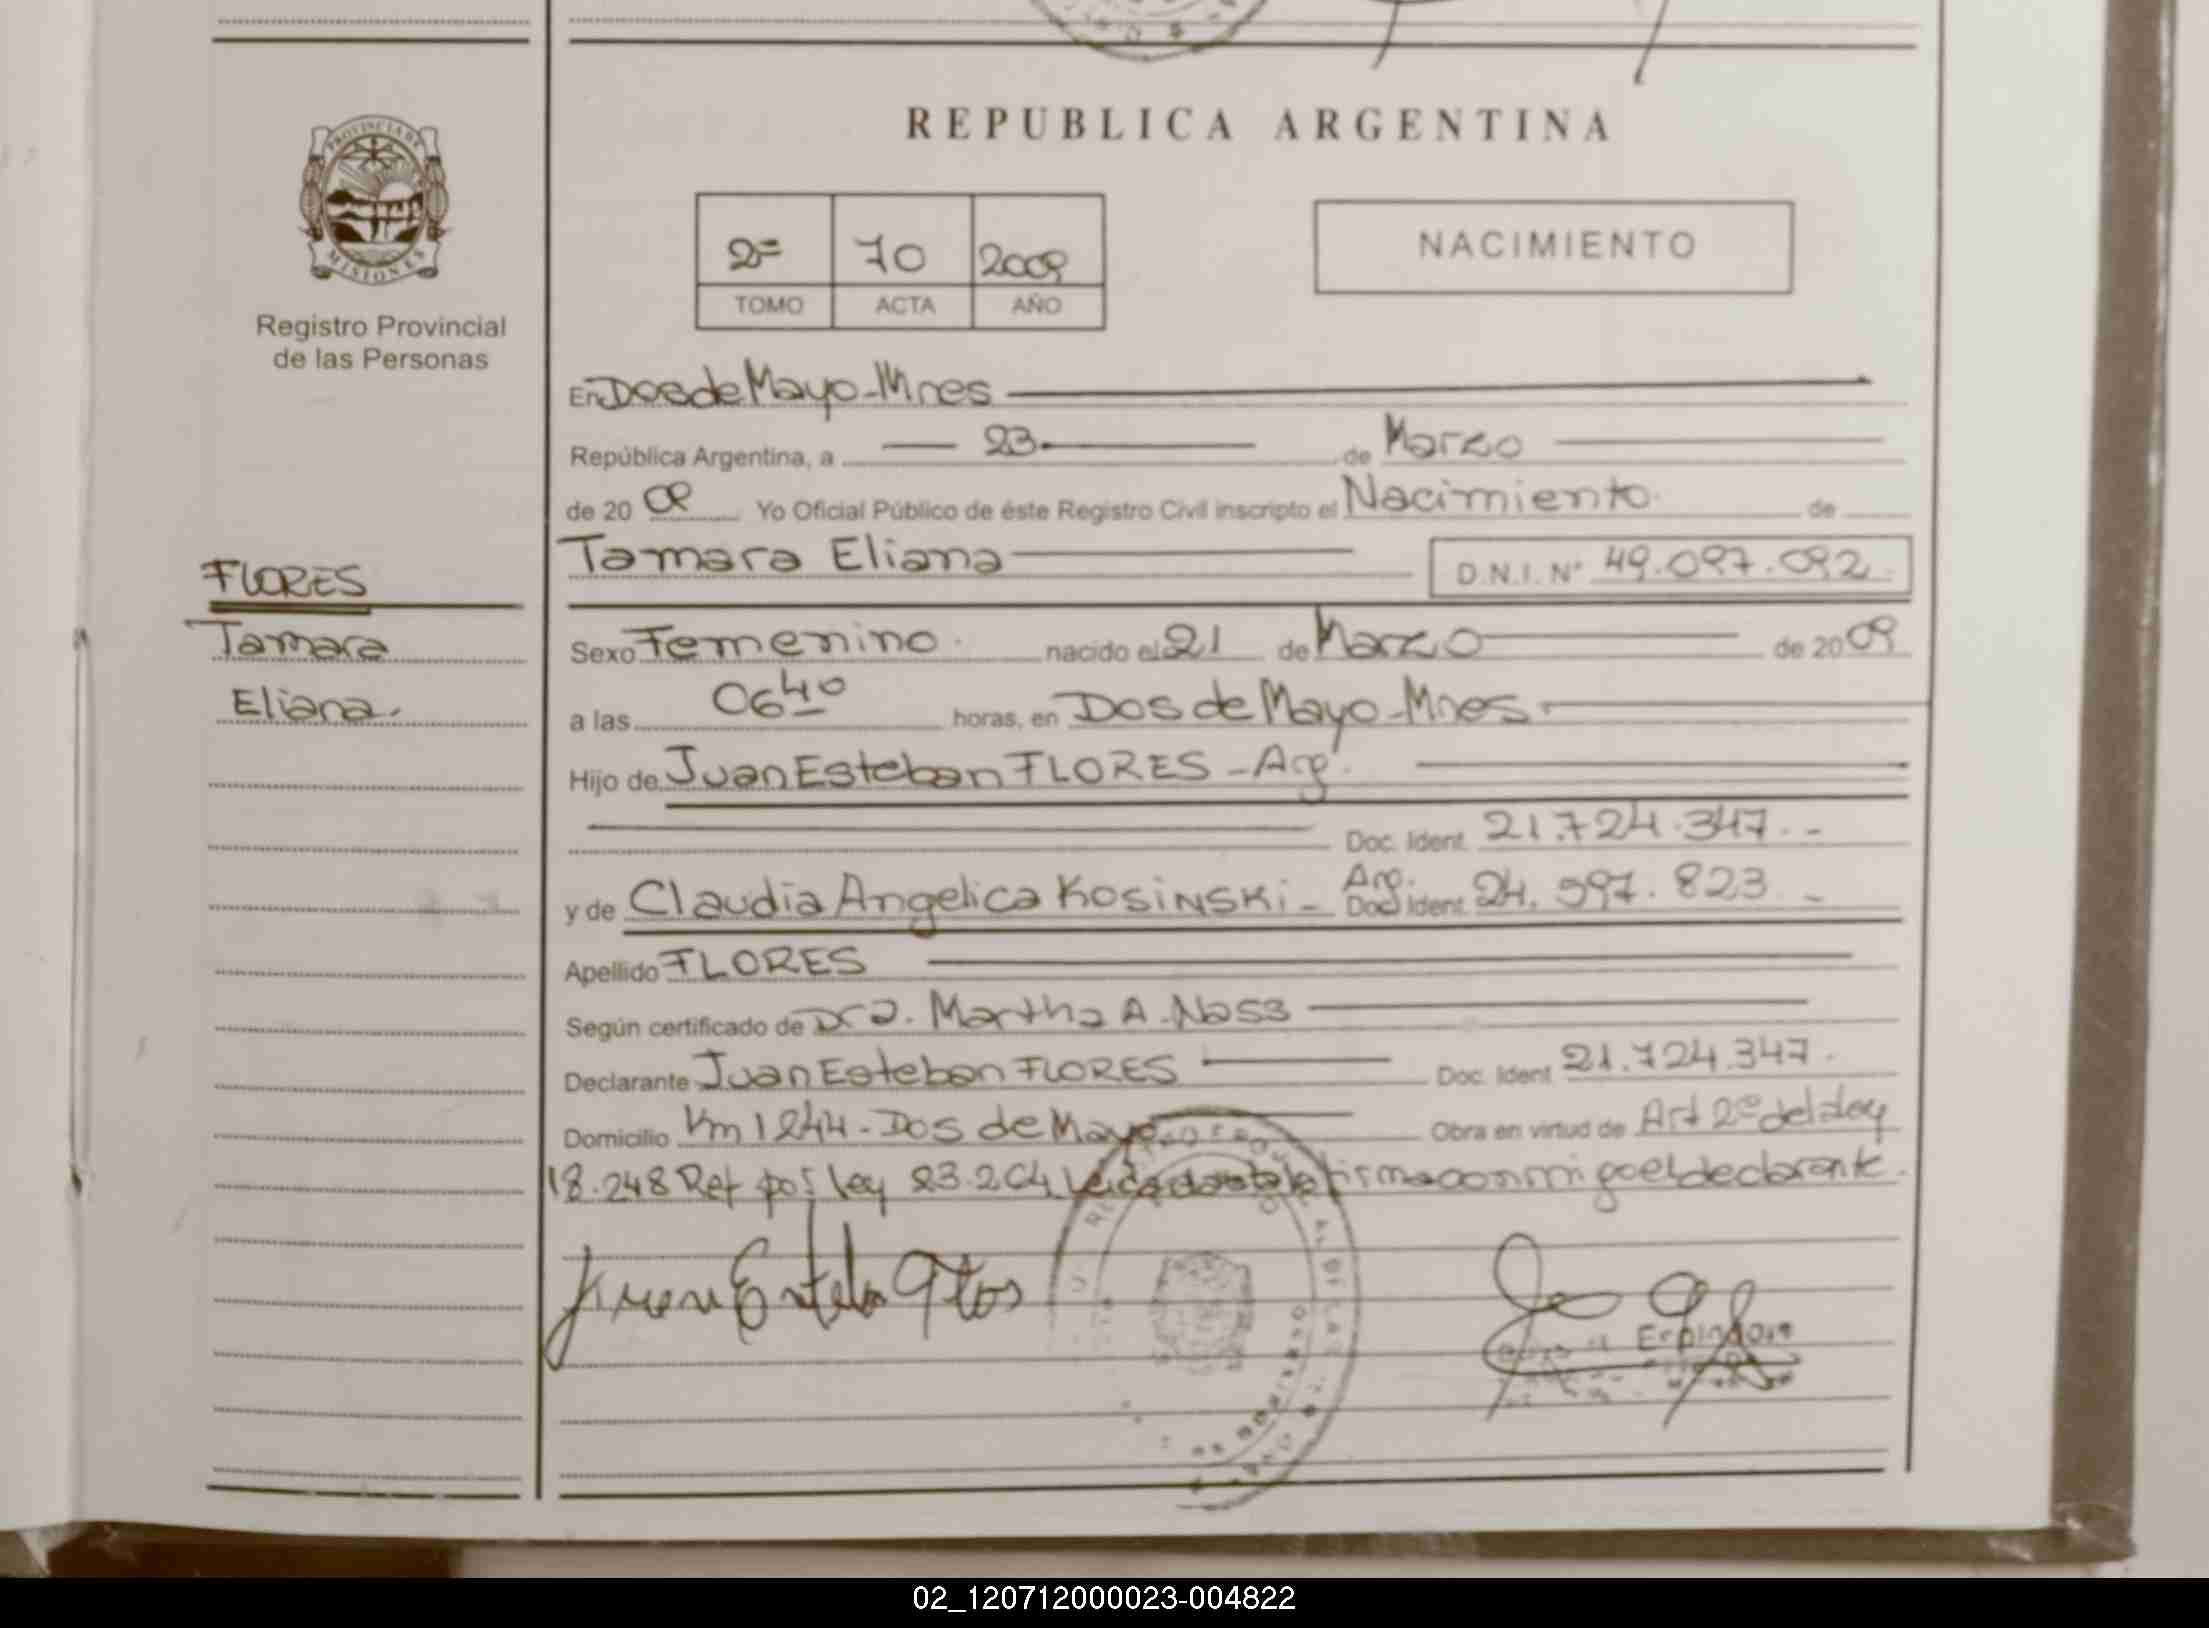 REPUBLICA ARGENTINA
PROVINCIA DE
MISIONES
Registro Provincial
de las Personas
2º 70 2009
TOMO ACTA AÑO
NACIMIENTO
En Dos de Mayo - Mnes
República Argentina, a 23 de Marzo
de 20 09 Yo Oficial Público de éste Registro Civil inscripto el Nacimiento de
Tamara Eliana D.N.I. Nº 49.097.092
FLORES
Tamara
Eliana
Sexo Femenino nacido el 21 de Marzo de 20 09
a las 06 40 horas, en Dos de Mayo - Mnes
Hijo de Juan Esteban FLORES - Arg.
Doc. Ident. 21.724.347.-
y de Claudia Angelica KOSINSKi - Arg. Doc. Ident. 24.597.823.-
Apellido FLORES
Según certificado de Dra. Martha A. Noss
Declarante Juan Esteban FLORES Doc. Ident. 21.724.347.
Domicilio Km 1244 - Dos de Mayo Obra en virtud de Art 2º del a ley
18.248 Ref por ley 23.264 Leida el acta la firma conmigo el declarante.
Juan Esteban
02_120712000023-004822